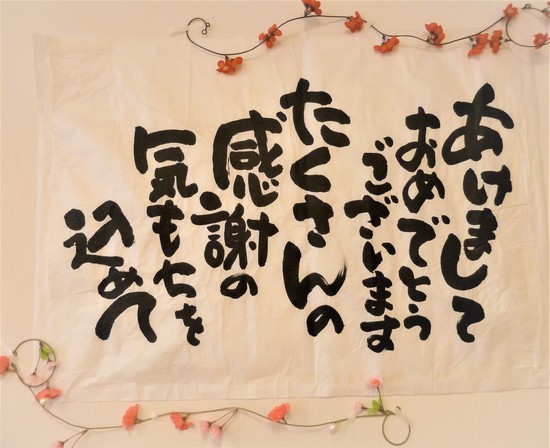 あけまして
おめでとう
ございます
たくさんの
感謝の
気もちを
込めて